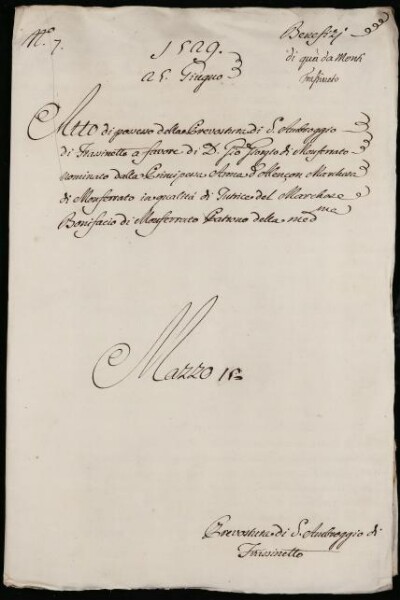 N.º 7.
1529.
a 5. Giugno
Benefizj
di quà da Monti
Frassineto
Atto di possesso della Prevostura di S. Ambroggio
di Frassinetto a favore di D. Gio Giorgio di Monferrato
nominato dalla Principessa Anna d'Alencon Marchesa
di Monferrato in qualità di Tutrice del Marchese
Bonifacio di Monferrato Patrono della medme
Mazzo
Prevostura di S. Ambroggio di
Frassinetto